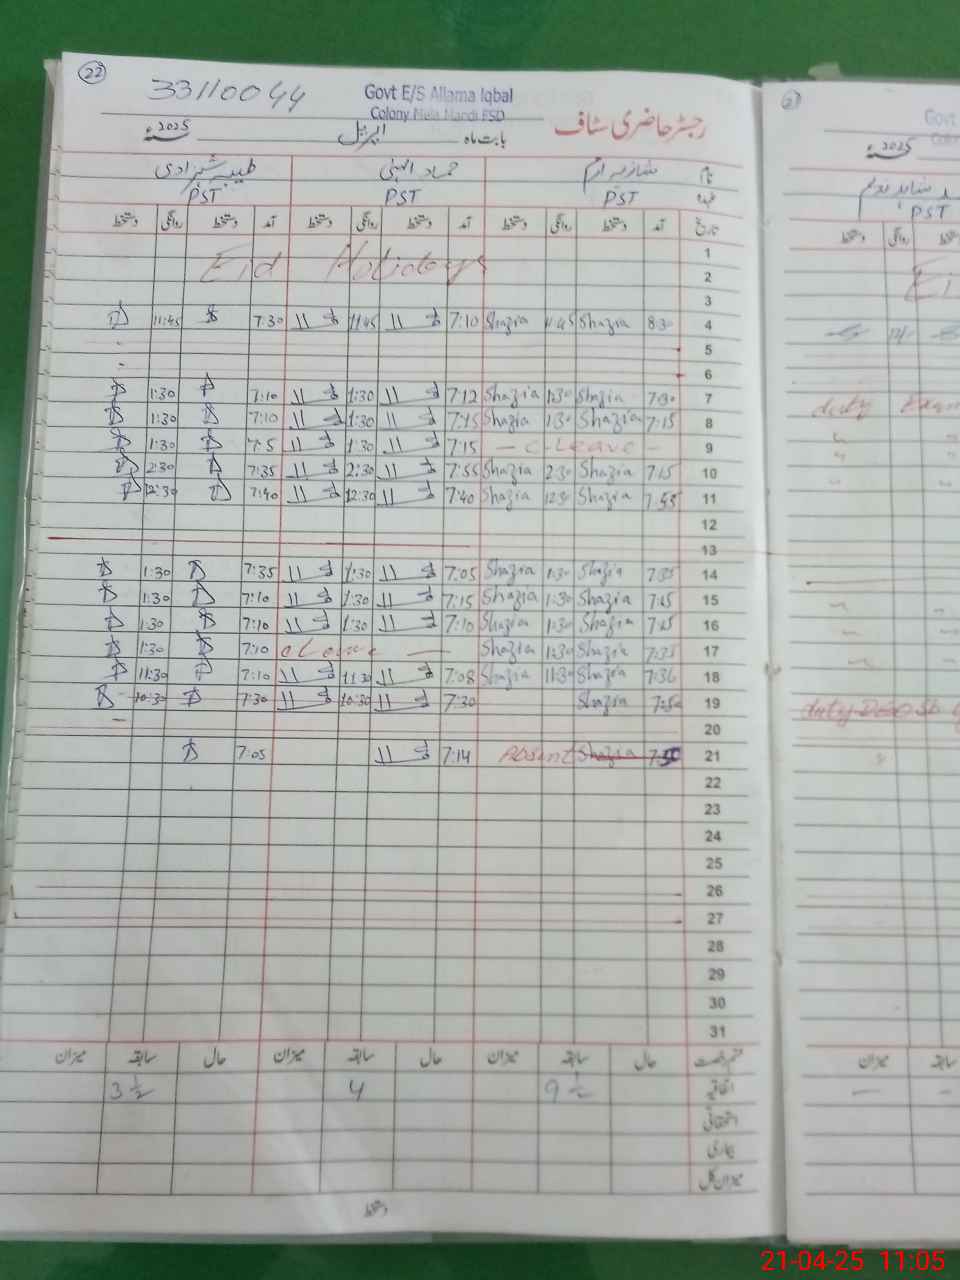 22
33110044
Govt E/S Allama Iqbal
Colony Mela Mandi FSD
رجسٹر حاضری سٹاف
بابت ماہ اپریل 2025
نام شازیہ ارم حماد طیبہ شہزادی
عہدہ PST PST PST
تاریخ آمد دستخط روانگی دستخط آمد دستخط روانگی دستخط آمد دستخط روانگی دستخط
1
Eid Holidays
2
3
11:45 7:30 11:45 7:10 Shazia 11:45 Shazia 8:30 4
5
6
1:30 7:10 1:30 7:12 Shazia 1:30 Shazia 7:30 7
1:30 7:10 1:30 7:15 Shazia 1:30 Shazia 7:15 8
1:30 7:5 1:30 7:15 - C-Leave - 9
2:30 7:35 2:30 7:55 Shazia 2:30 Shazia 7:15 10
12:30 7:40 12:30 7:40 Shazia 12:30 Shazia 7:55 11
12
13
1:30 7:35 1:30 7:05 Shazia 1:30 Shazia 7:35 14
1:30 7:10 1:30 7:15 Shazia 1:30 Shazia 7:15 15
1:30 7:10 1:30 7:10 Shazia 1:30 Shazia 7:15 16
1:30 7:10 Shazia 1:30 Shazia 7:35 17
11:30 7:10 11:30 7:08 Shazia 11:30 Shazia 7:36 18
10:30 7:30 10:30 7:30 Shazia 19
20
7:05 7:14 Absent Shazia 21
22
23
24
25
26
27
28
29
30
31
حال سابقہ میزان حال سابقہ میزان حال سابقہ میزان
اتفاقیہ 9 ½ 4 3 ½
استحقاقی
بیماری
میزان کل
دستخط
2025
PST
duty
21-04-25 11:05